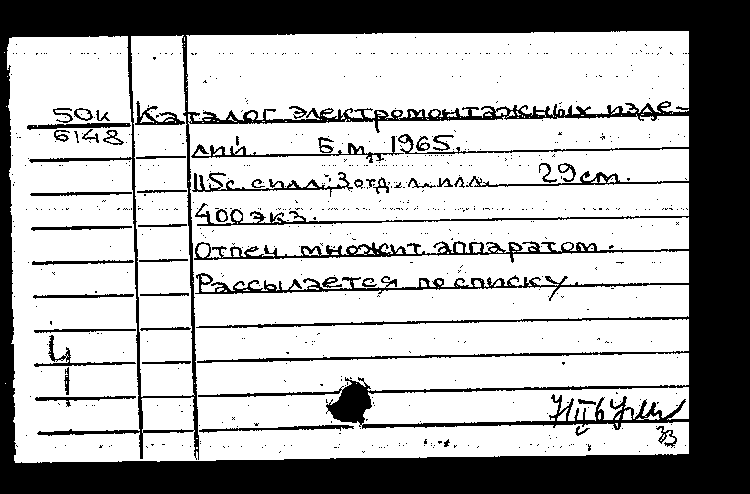 50к Каталог электромонтажных изде-
6148
лий. Б.м., 1965.
115с. с илл.; 3 отд. л. илл. 29 см.
400 экз.
Отпеч. множит. аппаратом.
Рассылается по списку.
Ч
33